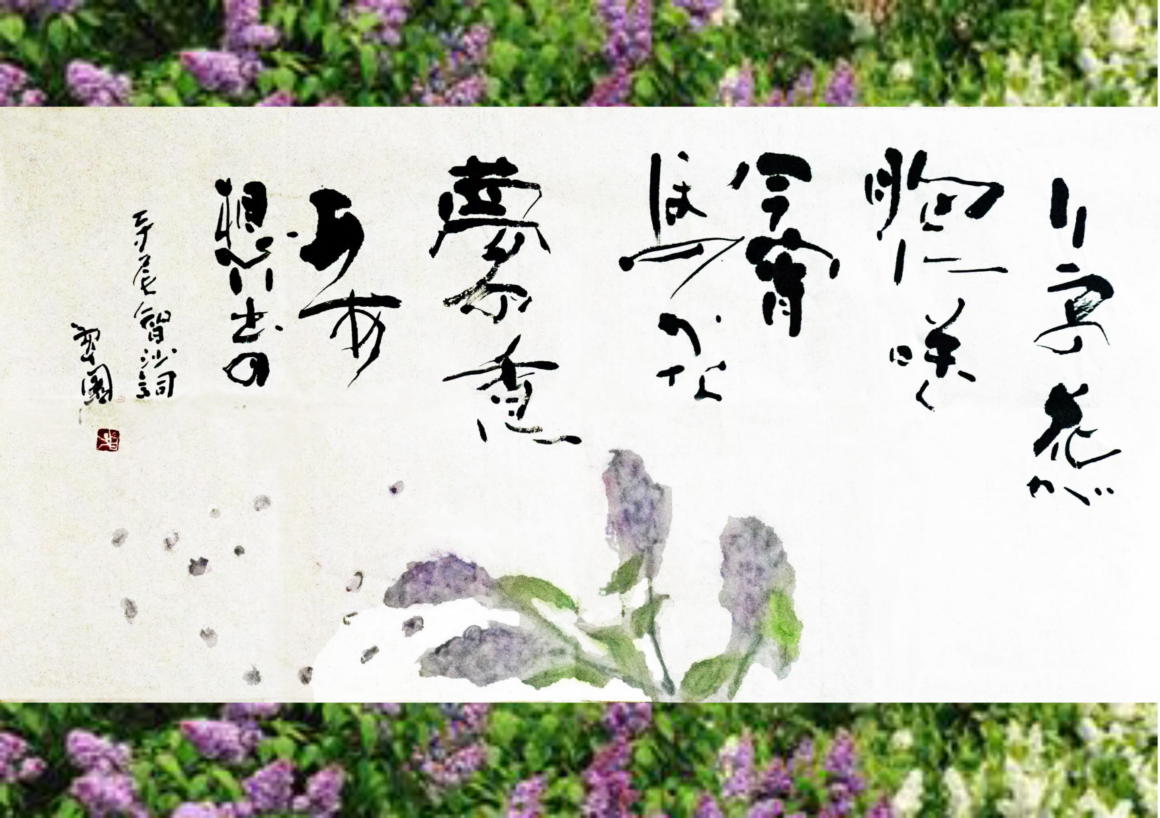 リラの花が
胸に咲く
今宵
ほのかな
夢の香
想い出の
寺尾智沙詞